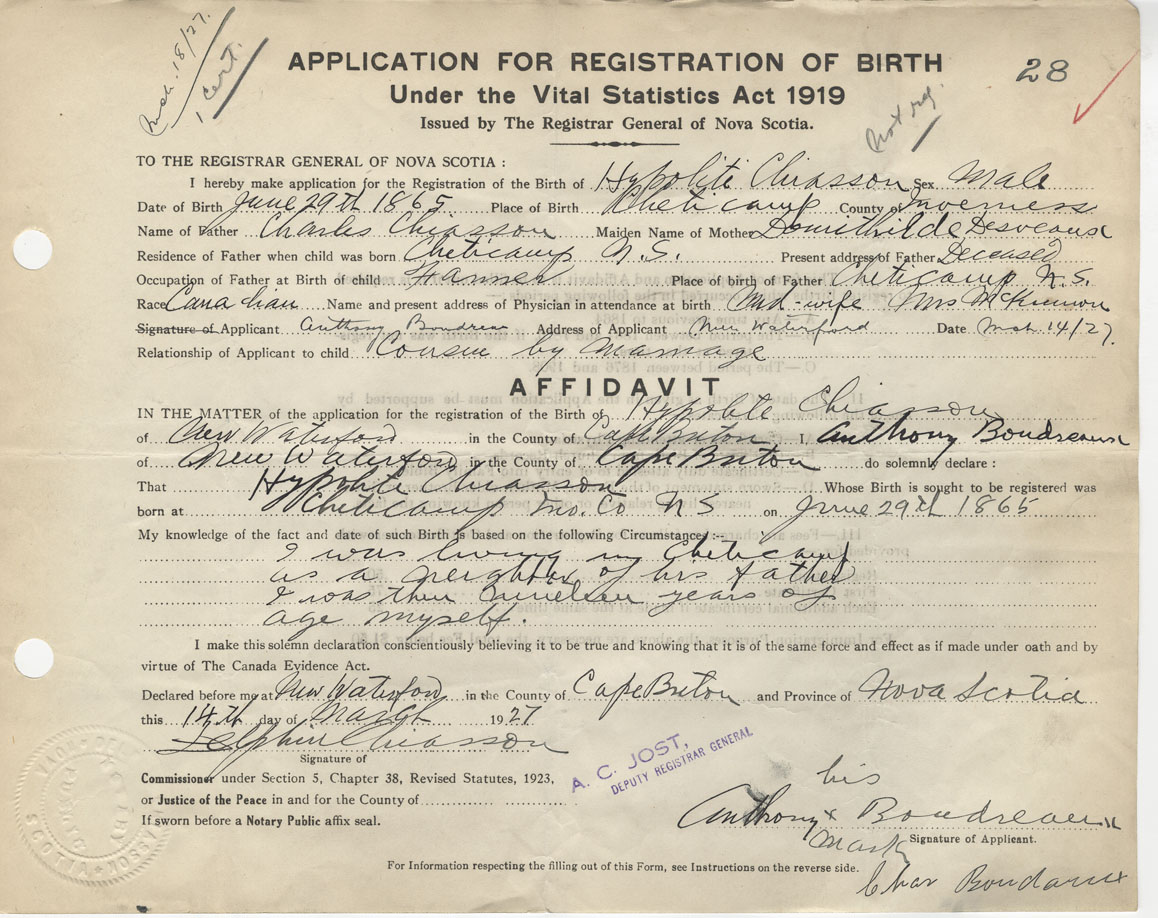 Mch. 18/27.
1 Cert.
APPLICATION FOR REGISTRATION OF BIRTH
28
Under the Vital Statistics Act 1919
Issued by The Registrar General of Nova Scotia.
Not reg.
TO THE REGISTRAR GENERAL OF NOVA SCOTIA :
I hereby make application for the Registration of the Birth of Hypolite Chiasson Sex Male
Date of Birth June 29th 1865. Place of Birth Cheticamp County of Inverness
Name of Father Charles Chiasson Maiden Name of Mother Domithilde Desveaux
Residence of Father when child was born Cheticamp N.S. Present address of Father Deceased
Occupation of Father at Birth of child Farmer Place of birth of Father Cheticamp N.S.
Race Canadian Name and present address of Physician in attendance at birth Mid-wife Mrs McKinnon
Signature of Applicant Anthony Boudreau Address of Applicant New Waterford Date Mch 14/27.
Relationship of Applicant to child Cousin by Marriage
AFFIDAVIT
IN THE MATTER of the application for the registration of the Birth of Hypolite Chiasson
of New Waterford in the County of Cape Breton I, Anthony Boudreaux
of New Waterford in the County of Cape Breton do solemnly declare :
That Hypolite Chiasson Whose Birth is sought to be registered was
born at Cheticamp Inv. Co N S on June 29th 1865
My knowledge of the fact and date of such Birth is based on the following Circumstances :-
I was living in Cheticamp
as a neighbor of his father
I was then nineteen years of
age myself.
I make this solemn declaration conscientiously believing it to be true and knowing that it is of the same force and effect as if made under oath and by
virtue of The Canada Evidence Act.
Declared before me at New Waterford in the County of Cape Breton and Province of Nova Scotia
this 14th day of March 1927
Delphin Chiasson
Signature of
Commissioner under Section 5, Chapter 38, Revised Statutes, 1923,
or Justice of the Peace in and for the County of
If sworn before a Notary Public affix seal.
A. C. JOST,
DEPUTY REGISTRAR GENERAL
his
Anthony x Boudreaux
Mark
Signature of Applicant.
For Information respecting the filling out of this Form, see Instructions on the reverse side.
Char Boudaux